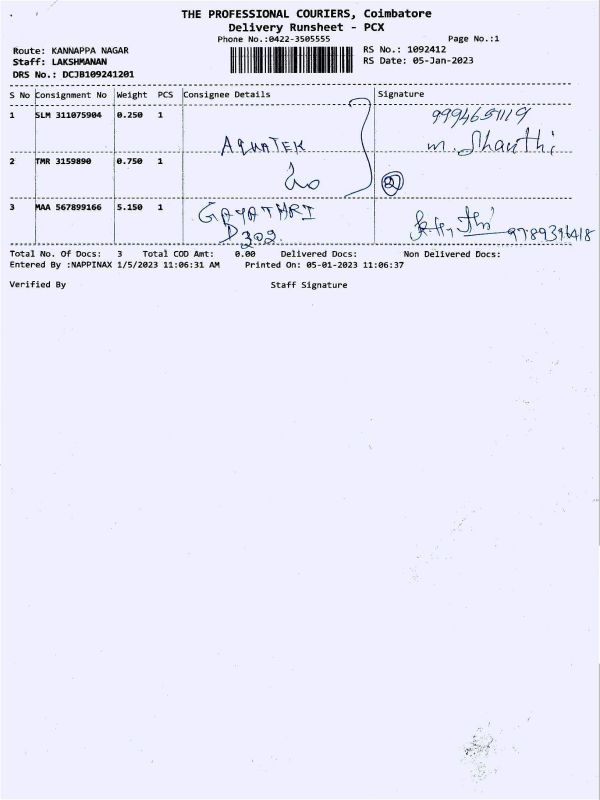 THE PROFESSIONAL COURIERS, Coimbatore
Delivery Runsheet - PCX
Phone No.:0422-3505555
Page No.:1
Route: KANNAPPA NAGAR
RS No.: 1092412
Staff: LAKSHMANAN
RS Date: 05-Jan-2023
DRS No.: DCJB109241201
S No Consignment No Weight PCS Consignee Details Signature
1 SLM 311075904 0.250 1
AQUATEK
m. Shanthi
2 TMR 3159890 0.750 1
3 MAA 567899166 5.150 1 GAYATHRI
D 302.
Total No. Of Docs: 3 Total COD Amt: 0.00 Delivered Docs: Non Delivered Docs:
Entered By :NAPPINAX 1/5/2023 11:06:31 AM Printed On: 05-01-2023 11:06:37
Verified By Staff Signature